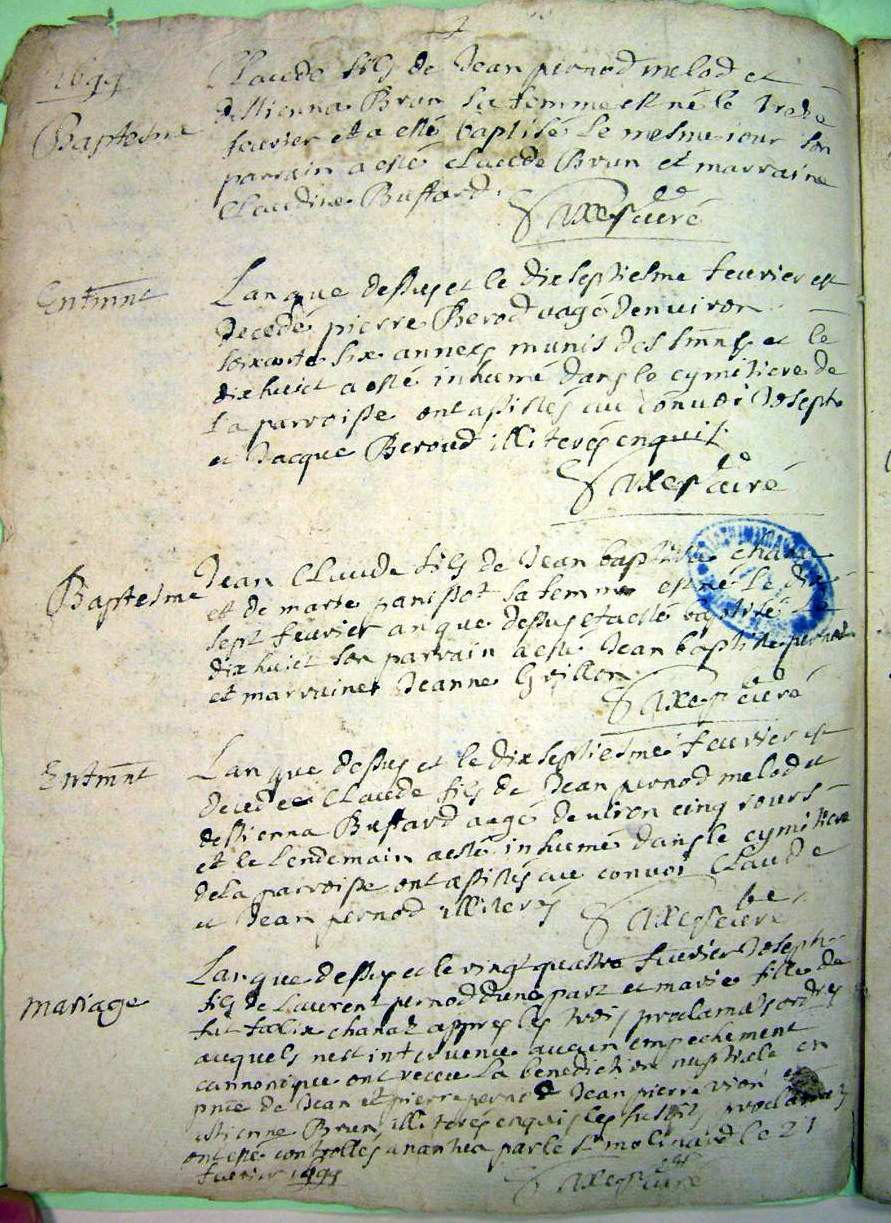 1699
Claude fils de Jean pernod melod et
Baptesme
destienna Brun sa femme est né le
feuvrier et a esté baptisé le mesme iour son
parrain a esté claude Brun et marraine
Claudine Buffard.
curé
Entmnt
Lan que dessus et le dix septiesme feuvrier est
decedé pierre Berod aagé denuiron
soixante six annees munis des smnts et le
dix huict a esté inhumé dans le cymitiere de
la parroisse ont assistés au convoi Joseph
et Jacque Beroud illiterés enquis
curé
Baptesme
Jean Claude fils de Jean baptiste
et de marie panissot sa femme est né le dix
sept feuvrier an que dessus et a esté baptisé le
dix huict son parrain a esté Jean baptiste pernod
et marraine Jeanne Grillon
curé
Entmnt
Lan que dessus et le dix septiesme feuvrier est
decedee Claude fils de Jean pernod melod et
destienna Buffard aagé denuiron cinq iours
et le lendemain a esté inhumé dans le cymitiere
de la parroisse ont assistés au convoi Claude
et Jean pernod illiterés
curé
Mariage
Lan que dessus et le vingt quattre feuvrier Joseph
fils de Laurent pernod dune part et marie fille de
fut felix chanez appres les trois proclamaons
auquels nest intervenu aucun empechement
cannonique ont receu la benediction nuptiale en
pnce de Jean et pierre pernod Jean pierre
estienne Brun illiterés enquis les susdits
ont esté controllés a nantua par le sr molinard le 21
feuvrier
curé